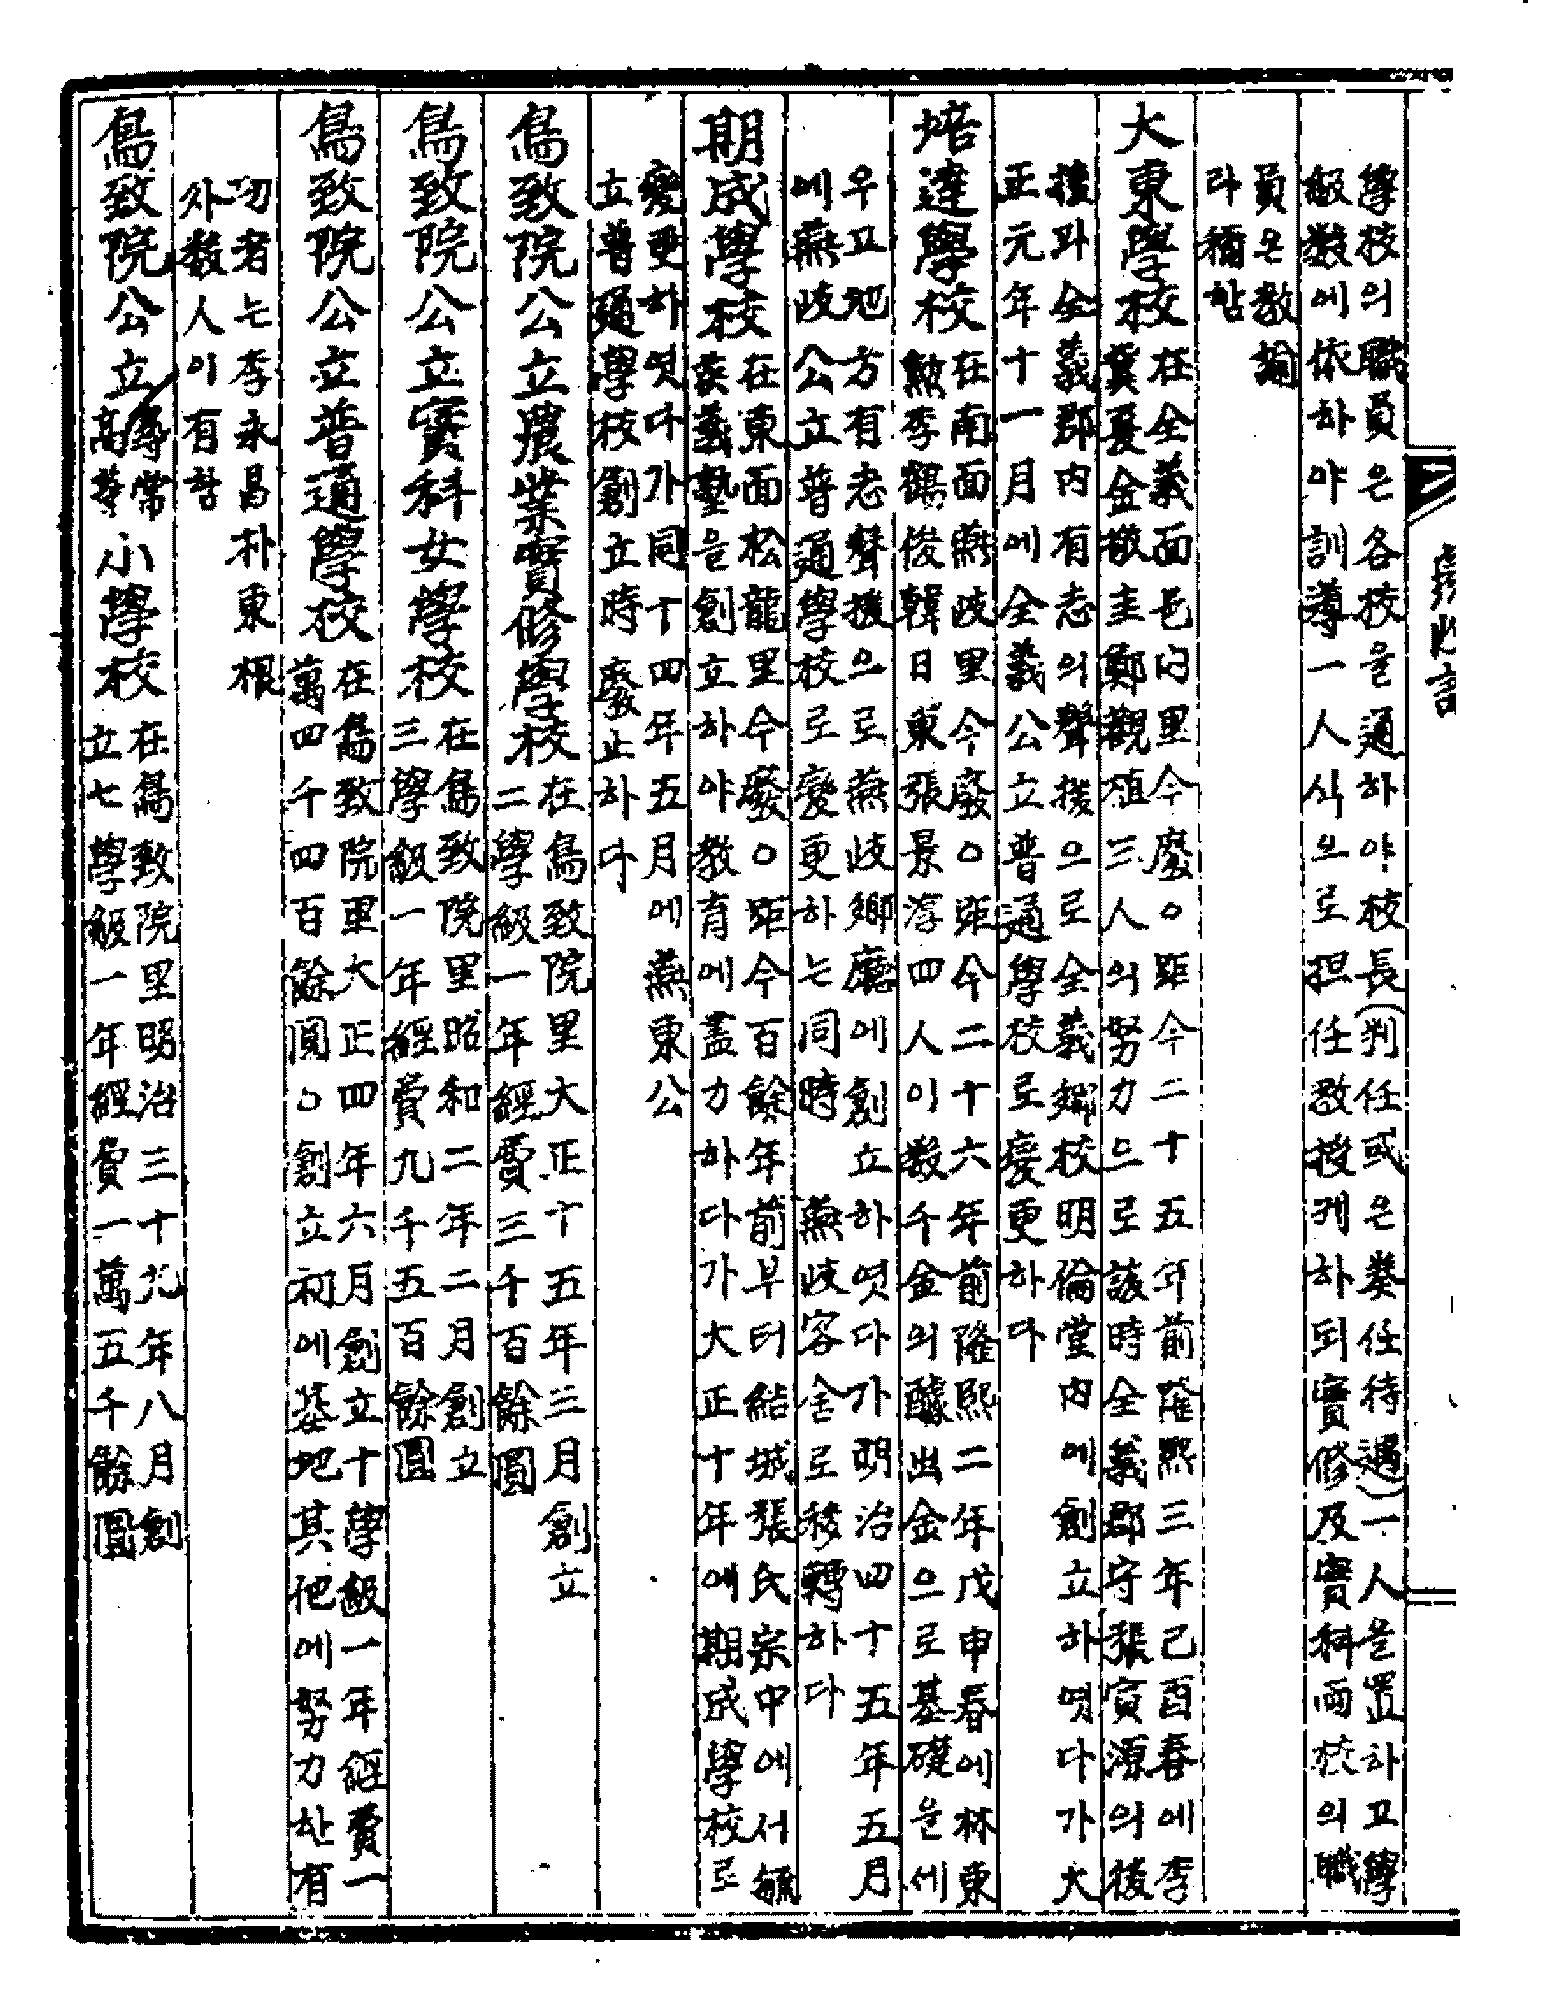 學校의職員은各校을通하야校長(判任或은奏任待遇)一人을置하고學
級數에依하야訓導一人식으로担任敎授케하되實修及實科両校의職
員은敎諭
라稱함
大東學校
在全義面邑内里今廢○距今二十五年前隆熙三年己酉春에李
冀夏金敬圭鄭觀植三人의努力으로該時全義郡守張寅源의後
援과全義郡内有志의聲援으로全義鄕校明倫堂内에創立하엿다가大
正元年十一月에全義公立普通學校로變更하다
培達學校
在南面燕岐里今廢○距今二十六年前隆熙二年戊申春에林東
勲李鶴俊韓日東張景淳四人이數千金의醵出金으로基礎을세
우고地方有志聲援으로燕岐鄕廳에創立하엿다가明治四十五年五月
에燕岐公立普通學校로變更하는同時 燕岐客舍로移轉하다
期成學校
在東面松龍里今廢○距今百餘年前부터結城張氏宗中에서毓
英義塾을創立하야敎育에盡力하다가大正十年에期成學校로
變更하엿다가同十四年五月에燕東公
立普通學校創立時 廢止하다
鳥致院公立農業實修學校
在鳥致院里大正十五年三月創立
二學級一年經費三千百餘圓
鳥致院公立實科女學校
在鳥致院里昭和二年二月創立
三學級一年經費九千五百餘圓
鳥致院公立普通學校
在鳥致院里大正四年六月創立十學級一年經費一
萬四千四百餘圓○創立初에基地其他에努力한有
功者는李永昌朴東根
外數人이有함
鳥致院公立尋常高等小學校
在鳥致院里明治三十九年八月創
立七學級一年經費一萬五千餘圓